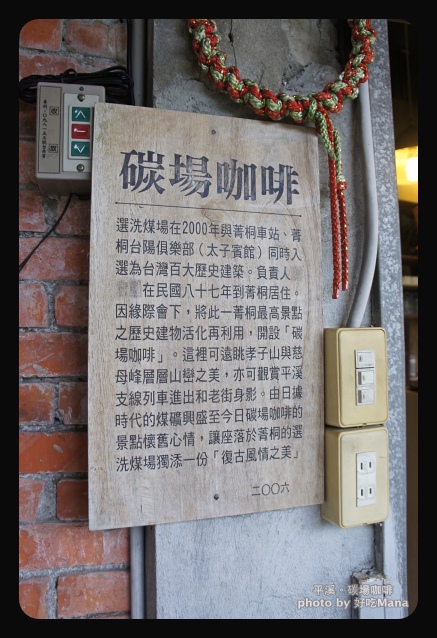 碳場咖啡
選洗煤場在2000年與菁桐車站、菁
桐台陽俱樂部（太子賓館）同時入
選為台灣百大歷史建築。負責人
在民國八十七年到菁桐居住。
因緣際會下，將此一菁桐最高景點
之歷史建物活化再利用，開設「碳
場咖啡」。這裡可遠眺孝子山與慈
母峰層層山巒之美，亦可觀賞平溪
支線列車進出和老街身影。由日據
時代的煤礦興盛至今日碳場咖啡的
景點懷舊心情，讓座落於菁桐的選
洗煤場獨添一份「復古風情之美」
二〇〇六
平溪。碳場咖啡
photo by 好吃Mana